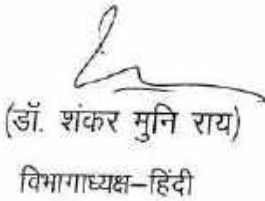 (डॉ. शंकर मुनि राय)
विभागाध्यक्ष–हिंदी